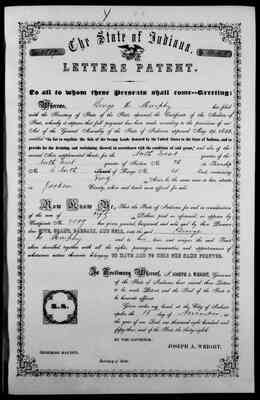 The State of Indiana.
LETTERS PATENT.
To all to whom these Presents shall come—Greeting:
Whereas, George W. Murphy has filed
with the Secretary of State of the State aforesaid the Certificate of the Auditor of
State, whereby it appears that full payment has been made according to the provisions of an
Act of the General Assembly of the State of Indiana approved May 29, 1852,
entitled "An Act to regulate the Sale of the Swamp Lands donated by the United States to the State of Indiana, and to
provide for the draining and reclaiming thereof, in accordance with the condition of said grant," and also of the
several Acts supplemental thereto, for the North East
quarter of Section No. in Township
No. North of Range No. East, containing
Forty Acres in the same more or less, situate
in Jackson County, when and tract was offered for sale.
Now Know Ye, That the State of Indiana for and in consideration
of the sum of Dollars, paid as aforesaid, as appears by
Certificate No. has given, granted, bargained and sold and by these Presents
does GIVE, GRANT, BARGAIN, AND SELL, unto the said George
W. Murphy and to heirs and assigns the said Tract
above described together with all the rights, privileges, immunities and appurtenances of
whatsoever nature thereunto belonging TO HAVE AND TO HOLD THE SAME FOREVER.
L. S.
In Testimony Whereof, I, JOSEPH A. WRIGHT, Governor
of the State of Indiana have caused these Letters
to be made Patent, and the Seal of the State to
be hereunto affixed.
Given under my hand, at the City of Indianapolis
under the 15 day of November in
the year of our Lord one thousand eight hundred and
fifty and of the State the thirty
BY THE GOVERNOR.
JOSEPH A. WRIGHT.
Secretary of State.